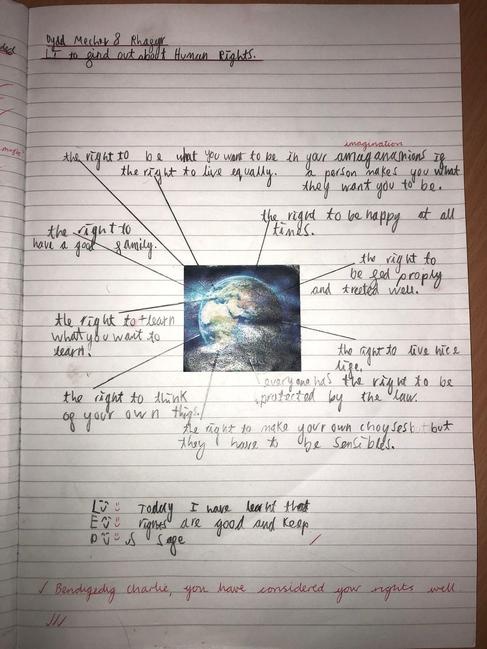 Dydd Mecher 8 Rhagyr
LI to find out about Human Rights.
imagination
the right to be what you want to be in your amaganamions if
the right to live equally. a person makes you what
they want you to be.
the right to be happy at all
tines.
the right to
have a good family.
the right to
be fed proply
and treeted well.
the right to learn
what you want to
learn.
the right to live nice
life.
the right to think
of your own thigs.
everyone has the right to be
protected by the law.
the right to make your own choyses but
they have to be sensibles.
L Today I have learnt that
E rightes are good and keep
D us safe
Bendigedig Charlie, you have considered your rights well